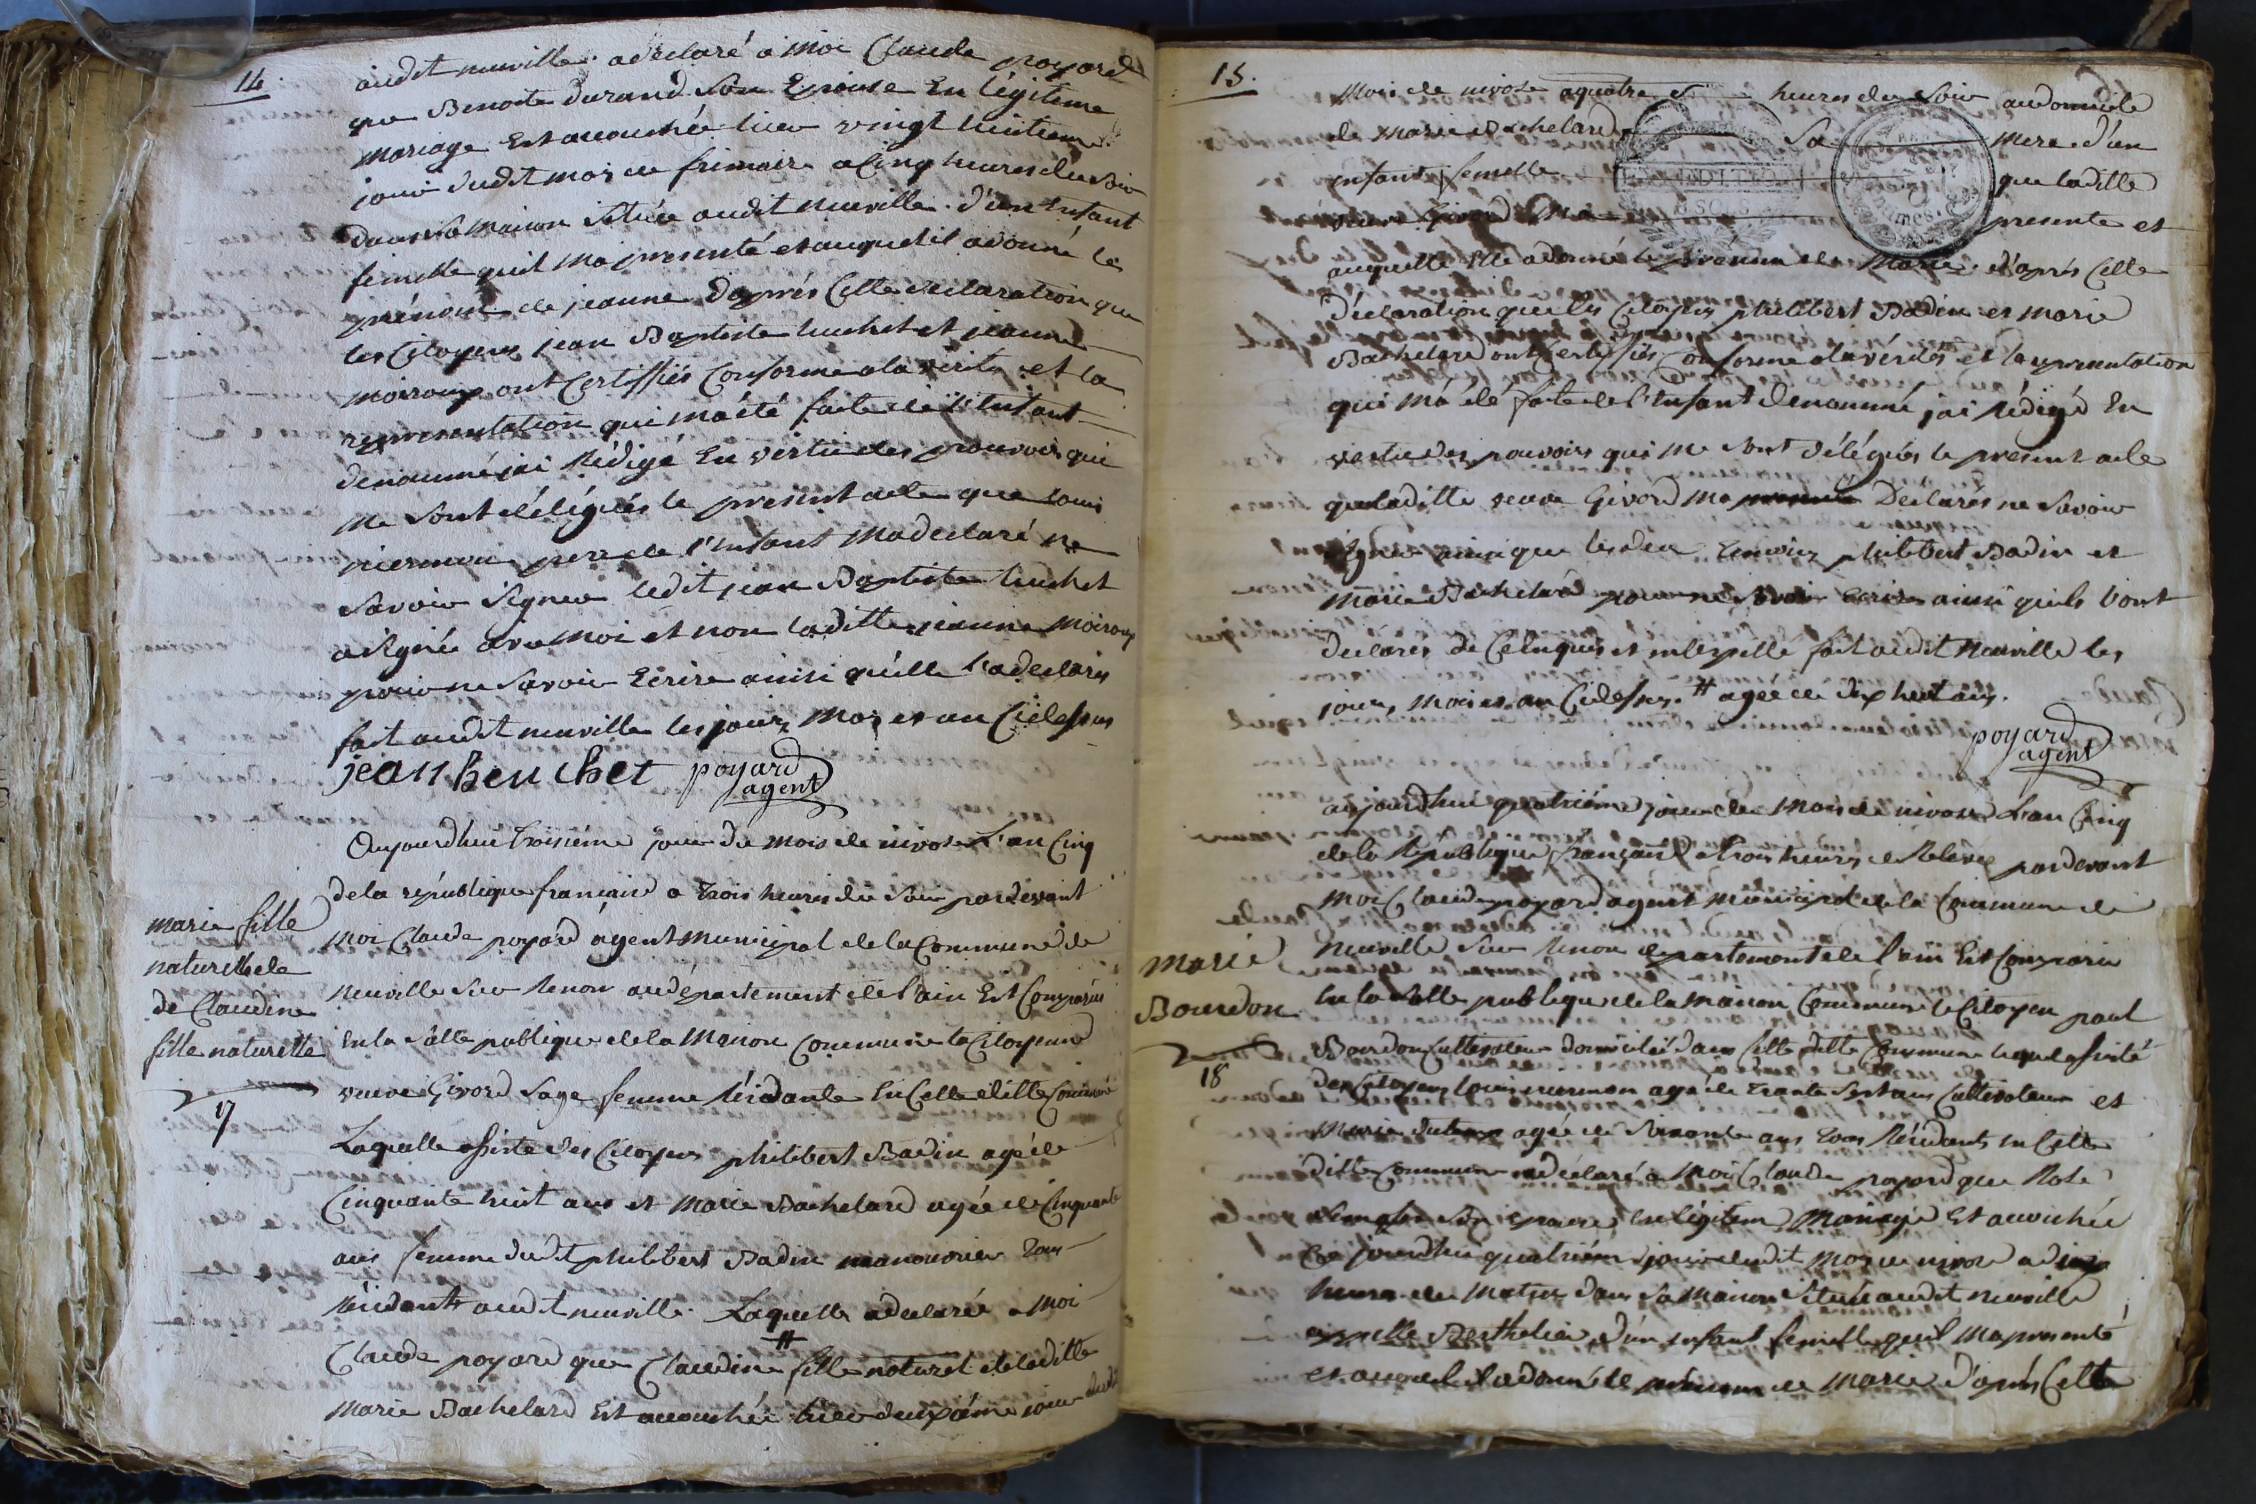 14.
audit neuville a declaré a moi Claude poyard
que Benoite durand Son Epouse En légiteme
mariage Est accouchée hier vingt huitieme
jour dudit mois de frimaire a Cinq heures du Soir
dans sa maison située audit neuville. d'un Enfant
femelle quil ma presenté et auquel il a donné le
prénom de jeanne d'aprés Cette declaration que
les Citoyens jean Baptiste huchet et jeanne
moiroux ont Certiffiés Conforme a la vérité et la
representation qui m'a été faite de l'Enfant
denommé jai Rédigé En vertu des pouvoirs qui
me sont délégués le present acte que Louis
piermon pere de l'enfant ma declaré ne
savoir Signer ledit jean Baptiste huchet
a signé avec moi et non laditte jeanne Moiroux
pour ne savoir Ecrire ainsi quelle l'a declarés
fait audit neuville les jour, mois et an Cidessus
jean heuchet poyard
agent
Aujourdhui troisiéme jour du mois de nivose L'an Cinq
de la république francaise a trois heures du Soir pardevant
marie fille
moi Claude poyard ágent municipal de la Commune de
naturelle de
neuville Sur Renon au département de l'ain Est Comparüe
de Claudine
fille naturelle
En la Salle publique de la Maison Commune la Citoyenne
veuve Givord Sage femme Résidante En Cette ditte Commune
17
Laquelle assisté des Citoyens philibert Badin agé de
Cinquante huit ans et Marie Bachelard agée de Cinquante
ans femme dudit philibert Badin manouvrier tous
Résidants audit neuville. Laquelle a declarée a moi
Claude poyard que Claudine # fille naturel de laditte
Marie Bachelard Est accouchée hier deuxiéme jour dudit
15.
Mois de nivose a quatre heures du Soir au domicile
de marie Bachelard Sa mere d'un
enfant femelle que laditte
veuve Givord Ma presenté et
auquelle Elle a donné le prénom de Marie. d'aprés Cette
Déclaration que les Citoyens philibert Badin et marie
Bachelard ont Certiffiés Conforme a la vérité et la representation
qui m'a été faite de l'Enfant denommé jai Rédigé En
vertu des pouvoirs qui me sont délégués le present acte
que laditte veuve Givord ma Declarés ne Savoir
signer ainsi que les deux temoins philibert Badin et
Marie Bachelard pour ne savoir écrire ainsi quils l'ont
déclarés de Ce enquis et interpellé fait audit Neuville les
jour, mois et an Cidessus. # agée de dix huit ans.
poyard
agent
aujourdhui quatriéme jour du Mois de nivose L'an Cinq
de la République française a trois heures de Relevée pardevant
moi Claude poyard agent municipal de la Commune de
Marie
Neuville Sur Renon departement de l'ain Est Comparu
Bourdon
En la Salle publique de la Maison Commune le Citoyen paul
Bourdon Cultivateur domicilié dans Cette ditte Commune lequel assisté
18
des Citoyens Louis piermon agé de trente Sept ans Cultivateur et
Marie agée de Soixante ans tous Résidants en Cette
ditte Commune a déclaré a Moi Claude poyard que Rose
Son epouse En légiteme Mariage Est accouchée
Ce jourdhui quatriéme jour dudit Mois de nivose a dix
heures du Matin dans Sa Maison Située audit neuville
appellé Berthelier d'un enfant femelle quil ma presenté
et auquel il a donné le prénom de Marie d'aprés Cette